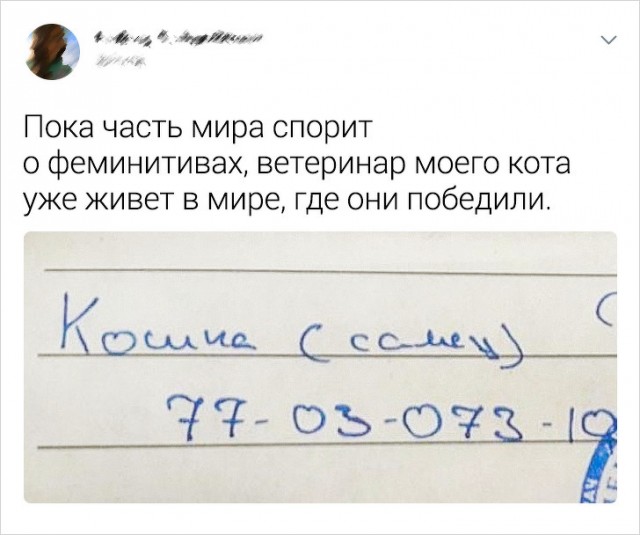 Пока часть мира спорит
о феминитивах, ветеринар моего кота
уже живет в мире, где они победили.
Кошка (самец)
77-03-073-10